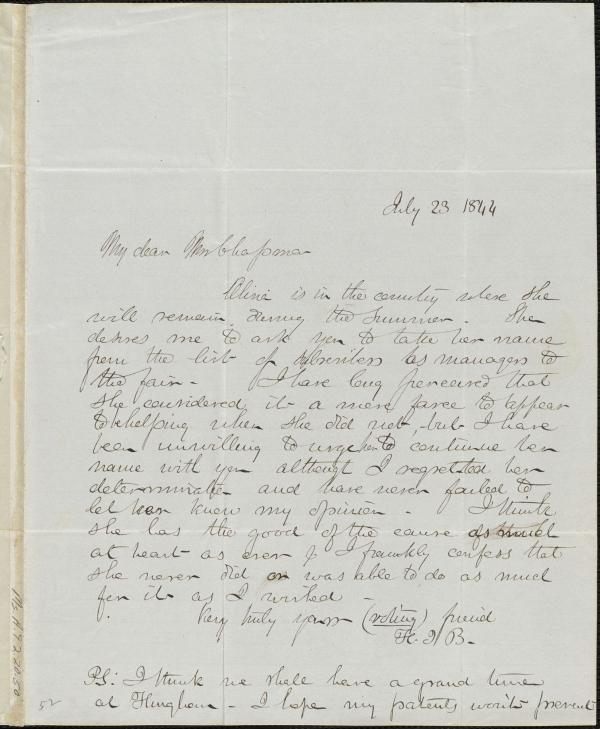 July 23 1844
My dear Mrs Chapman
Olivia is in the country where she
will remain during the summer. She
desires me to ask you to take her name
from the list of subscribers as managers to
the fair - I have long perceived that
she considered it a mere farce to appear
to be helping when she did not, but I have
been unwilling to urge her to continue her
name with you although I regretted her
determination and have never failed to
let her know my opinion. I think
she has the good of the cause as much
at heart as ever & I frankly confess that
she never did or was able to do as much
for it as I wished -
Very truly yours (voting) friend
H. I. B.
PS: I think we shall have a grand time
at Hingham - I hope my patients won't prevent
52
Ms. A.9.2.20.50